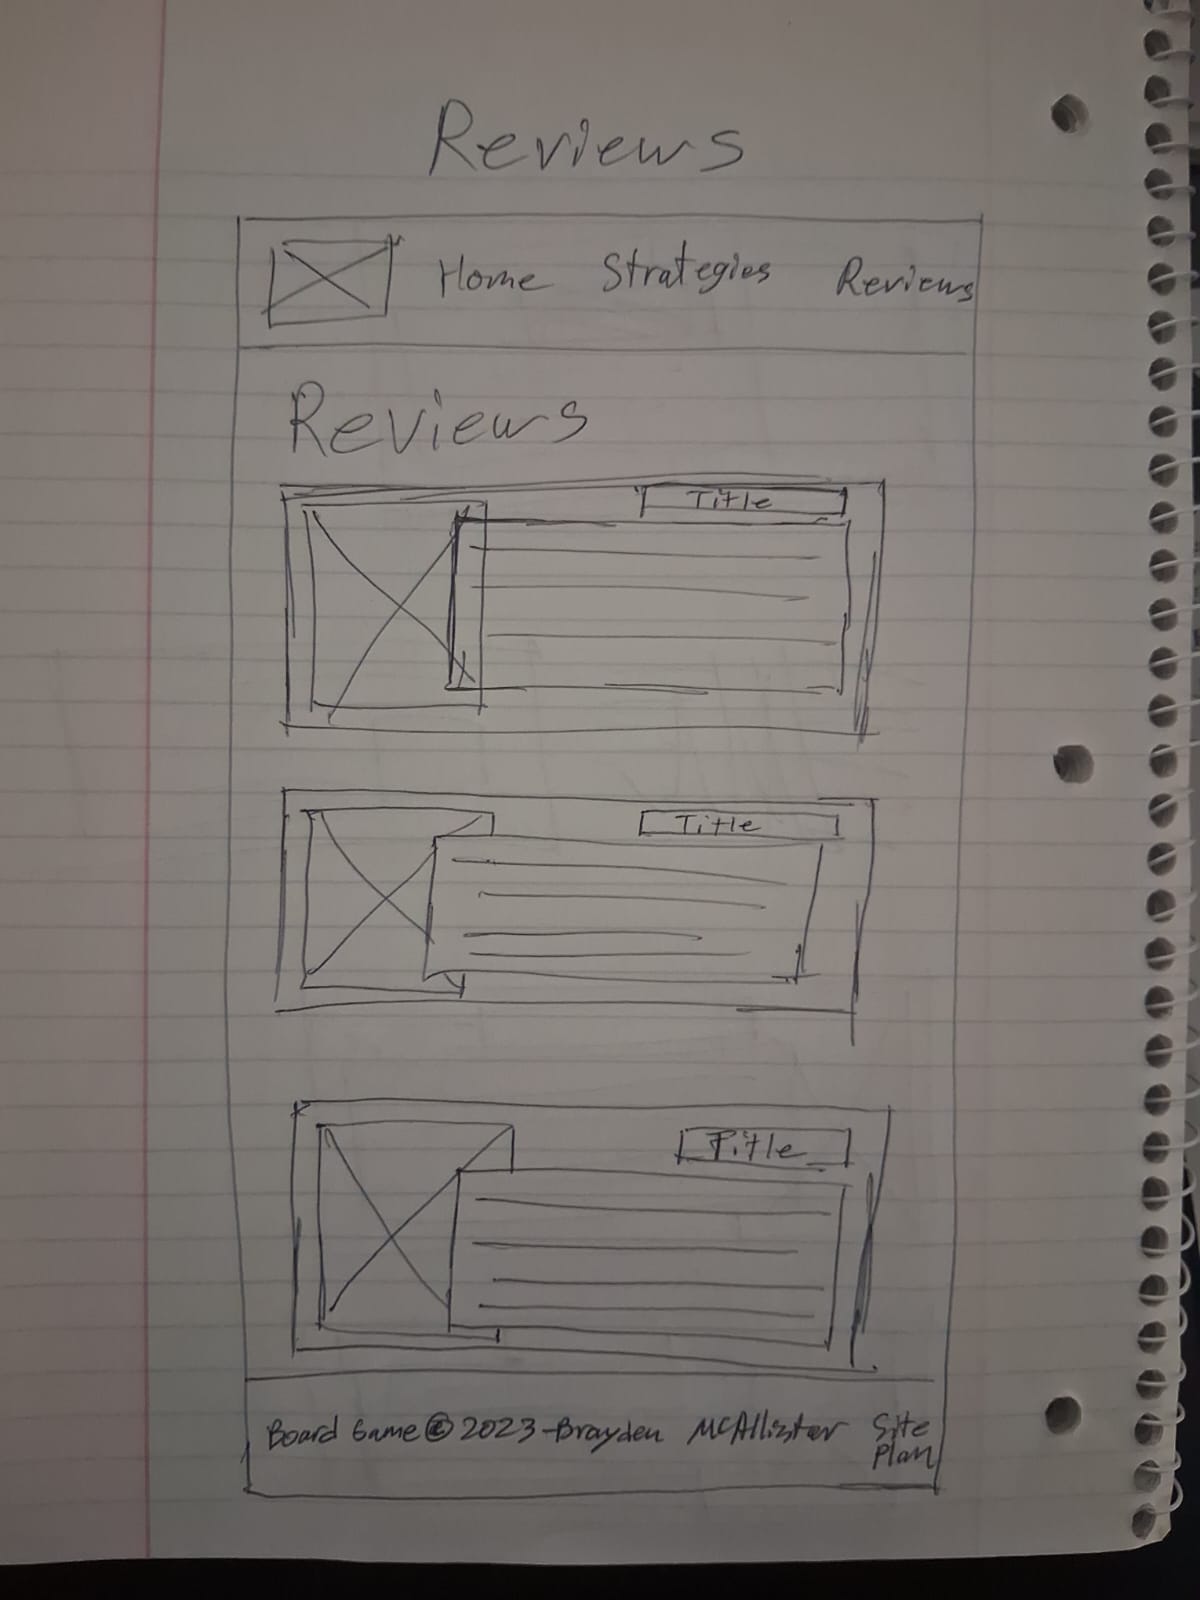 Reviews
Home Strategies Reviews
Reviews
Title
Title
Title
Board Game © 2023 - Brayden McAllister Site
Plan